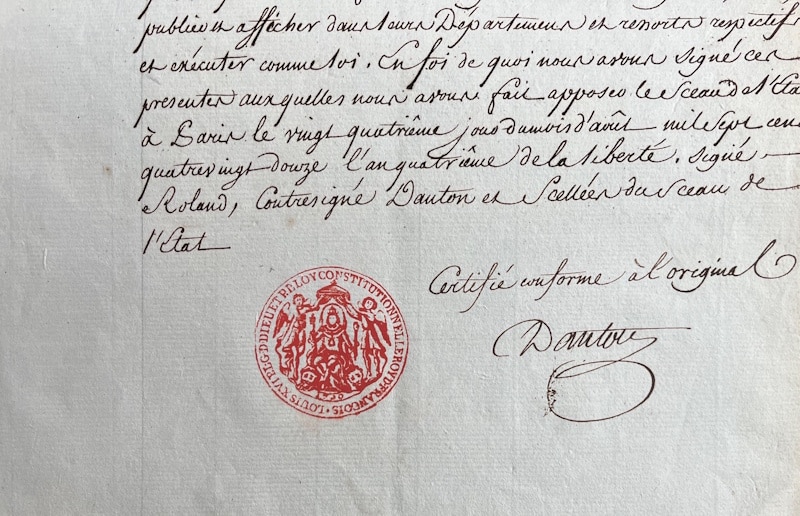 publier et afficher dans leurs Départemens et ressorts respectifs
et exécuter comme loi. En foi de quoi nous avons signé ces
presentes auxquelles nous avons fait apposer le Sceau de l'État
à Paris le vingt quatrième jour du mois d'août mil Sept cent
quatrevingt douze l'an quatrième de la liberté. signé
Roland, Contresigné Danton et Scellées du Sceau de
l'État
Certifié conforme à l'original
Danton
LOUIS XVI P. LA G. D. DIEU ET P. LA LOY CONSTITUTIONNELLE ROY D. FRANCOIS